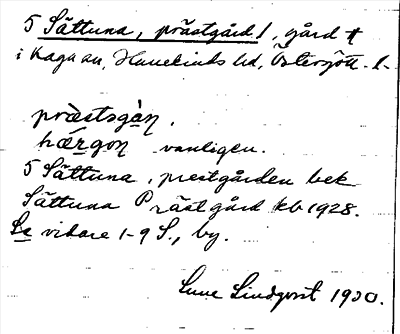 5 Sättuna, prästgård 1, gård †
i Kaga sn, Hanekinds hd, Östergötl. l.
præstsgàn̥.
hǽrgon̥ vanligen.
5 Sättuna, prestgården bek
Sättuna Prästgård kb 1928.
Se vidare 1-9 S., by.
Sune Lindqvist 1930.